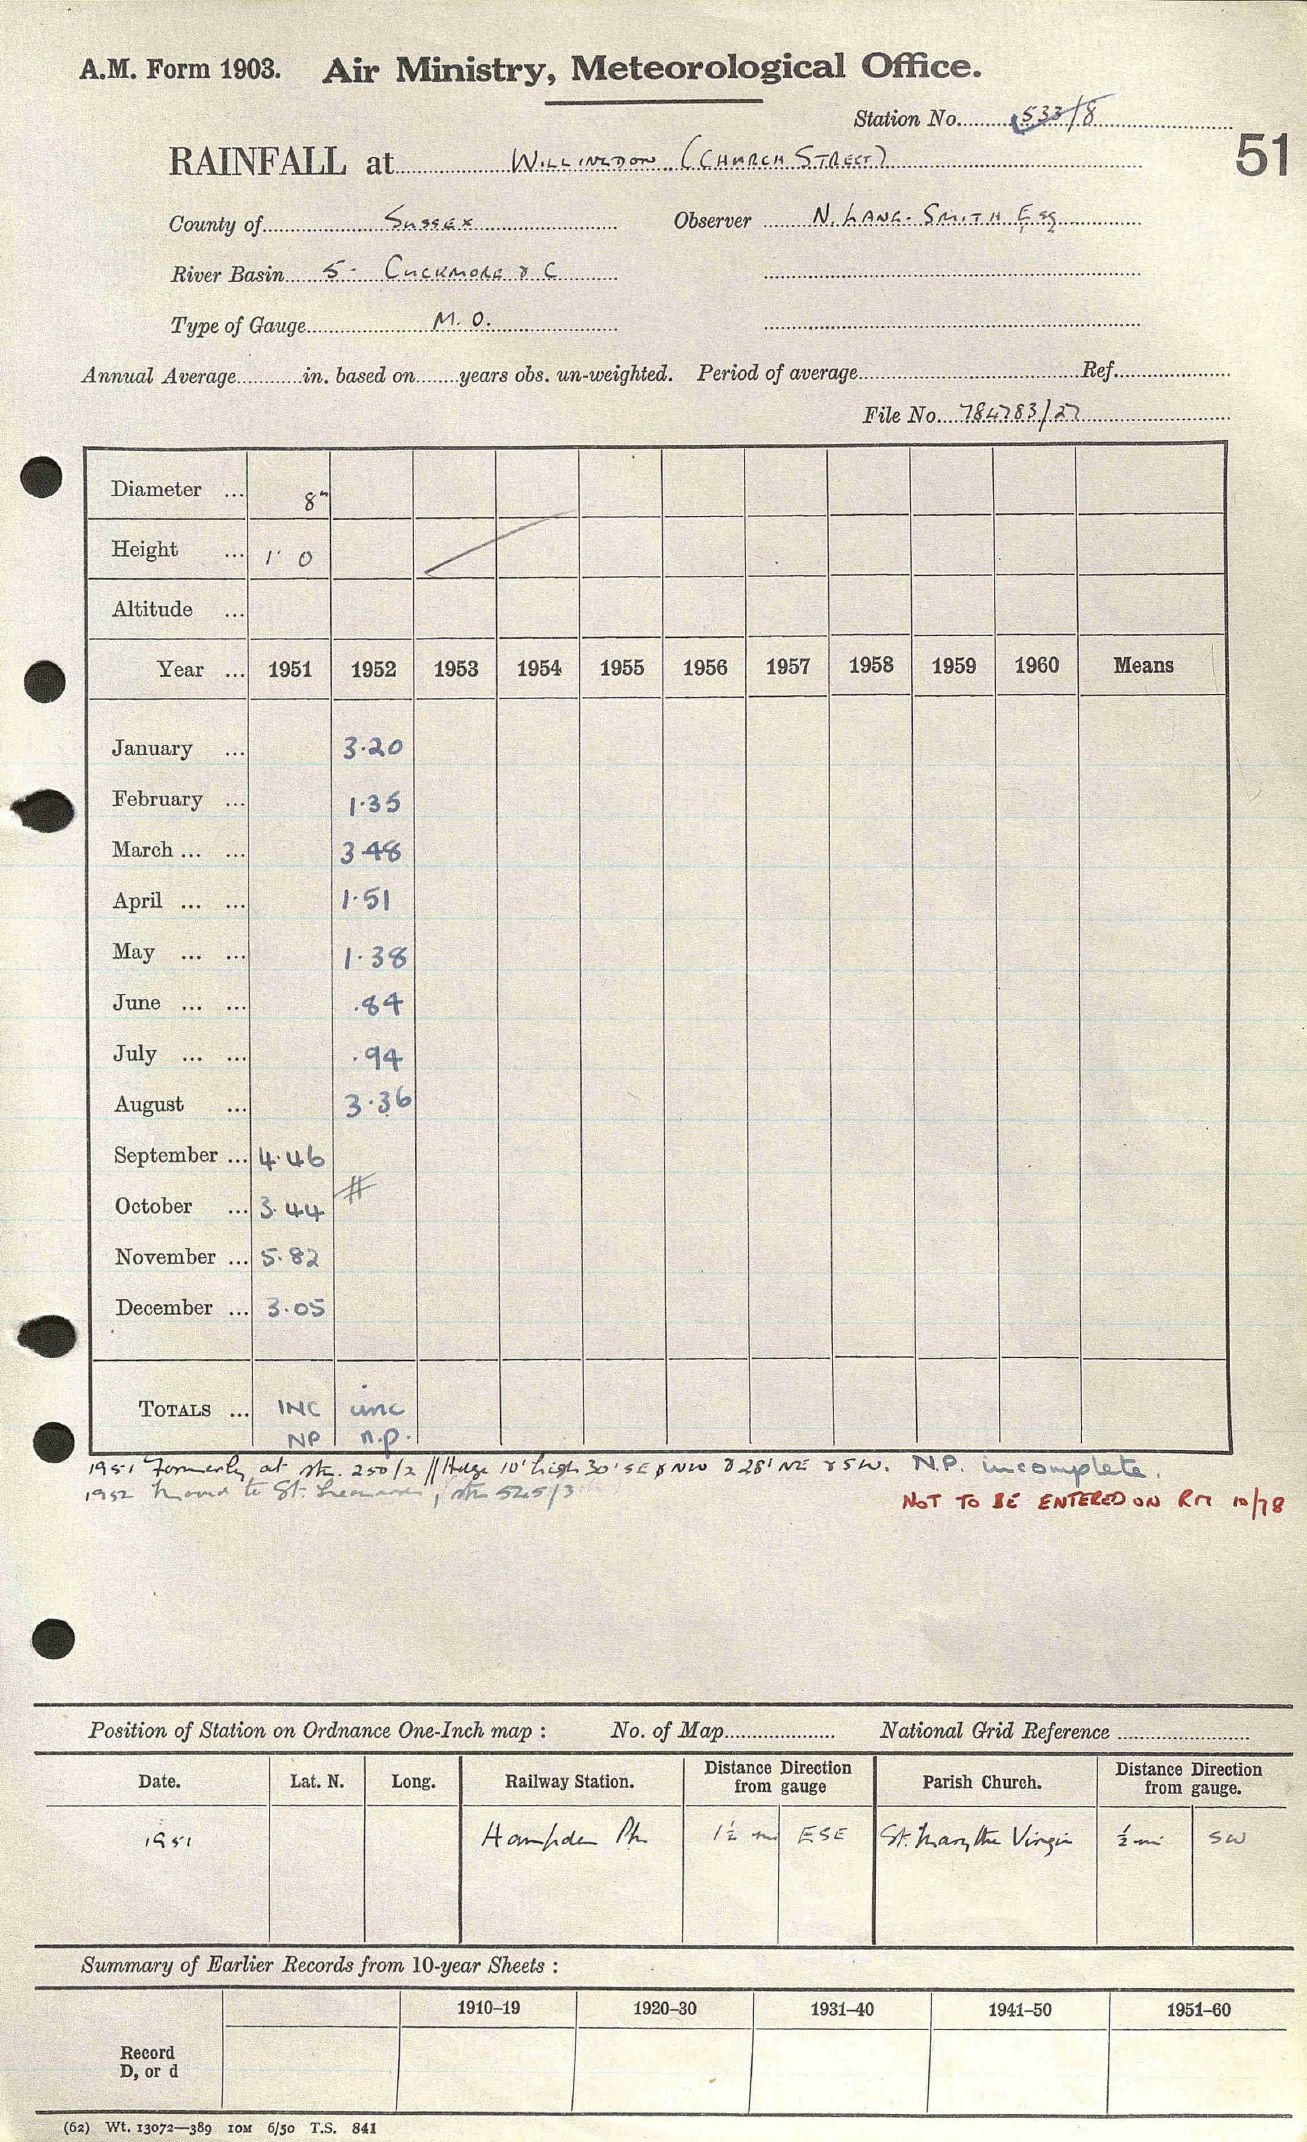 A.M. Form 1903. Air Ministry, Meteorological Office.
Station No. 533/8
51
RAINFALL at Willingdon (Church Street)
County of Sussex Observer N. Lane-Smith Esq
River Basin 5 - Cuckmore & C
Type of Gauge M.O.
Annual Average in. based on years obs. un-weighted. Period of average Ref.
File No. 784783/27
Diameter ... 8"
Height ... 1' 0
Altitude ...
Year ... 1951 1952 1953 1954 1955 1956 1957 1958 1959 1960 Means
January ... 3.20
February ... 1.35
March ... ... 3.48
April ... ... 1.51
May ... ... 1.38
June ... ... .84
July ... ... .94
August ... 3.36
September ... 4.46
October ... 3.44 #
November ... 5.82
December ... 3.05
TOTALS ... INC inc
NP n.p.
1951 Formerly at stn. 250/2 // Hedge 10' high 30' SE & NW & 28' NE & SW. N.P. incomplete.
1952 Moved to St. Leonards, stn 525/3
NOT TO BE ENTERED ON RM 10/78
Position of Station on Ordnance One-Inch map : No. of Map National Grid Reference
Date. Lat. N. Long. Railway Station. Distance Direction from gauge Parish Church. Distance Direction from gauge.
1951 Hampden Pk 1½ mi ESE St. Mary the Virgin ½ mi SW
Summary of Earlier Records from 10-year Sheets :
1910–19 1920–30 1931–40 1941–50 1951–60
Record
D, or d
(62) Wt. 13072—389 10M 6/50 T.S. 841